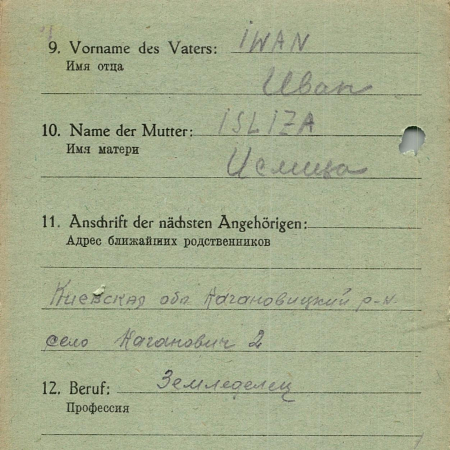 9. Vorname des Vaters: IWAN
Имя отца
Иван
10. Name der Mutter: ISLIZA
Имя матери
11. Anschrift der nächsten Angehörigen:
Адрес ближайших родственников
Киевская обл Кагановицкий р-н
село Каганович 2
12. Beruf: Земледелец
Профессия